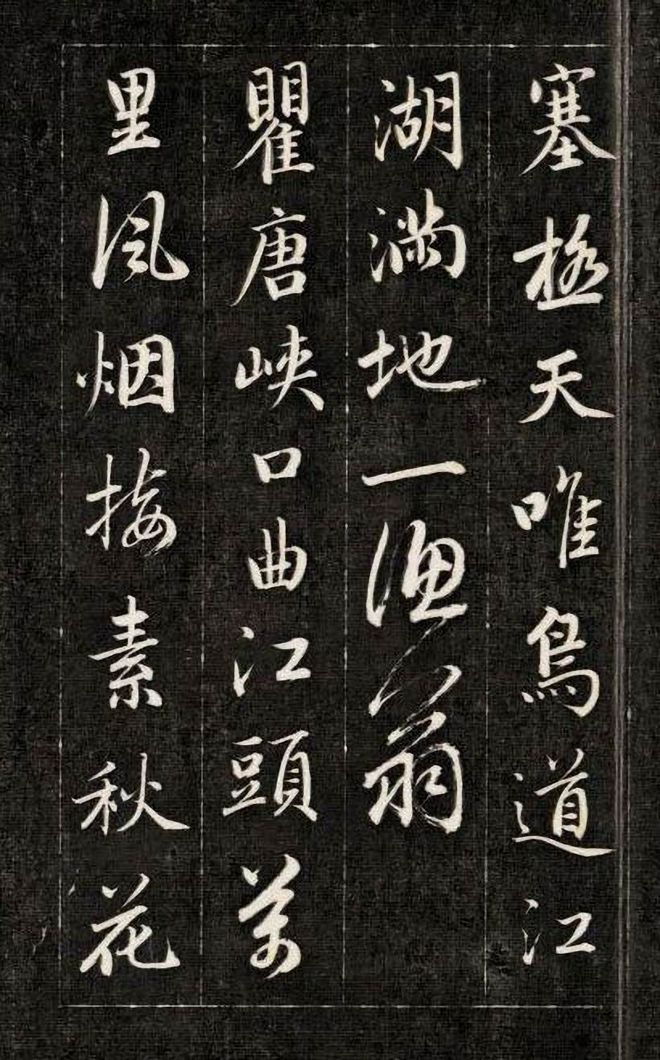 塞極天唯鳥道江
湖滿地一漁翁
瞿唐峽口曲江頭萬
里風烟接素秋花